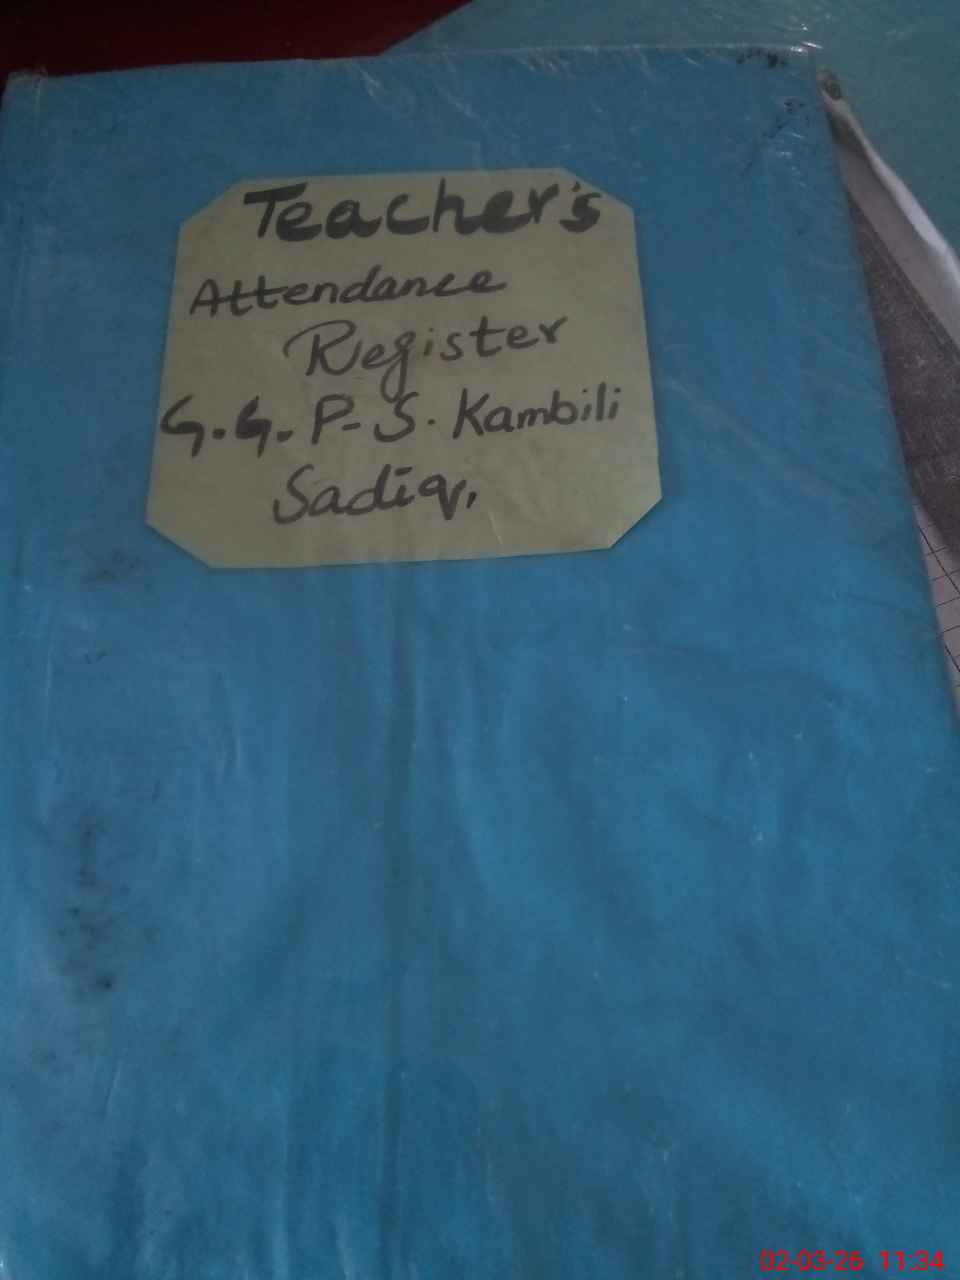 Teacher's
Attendance
Register
G.G.P-S. Kambili
Sadiq,
02-03-26 11:34